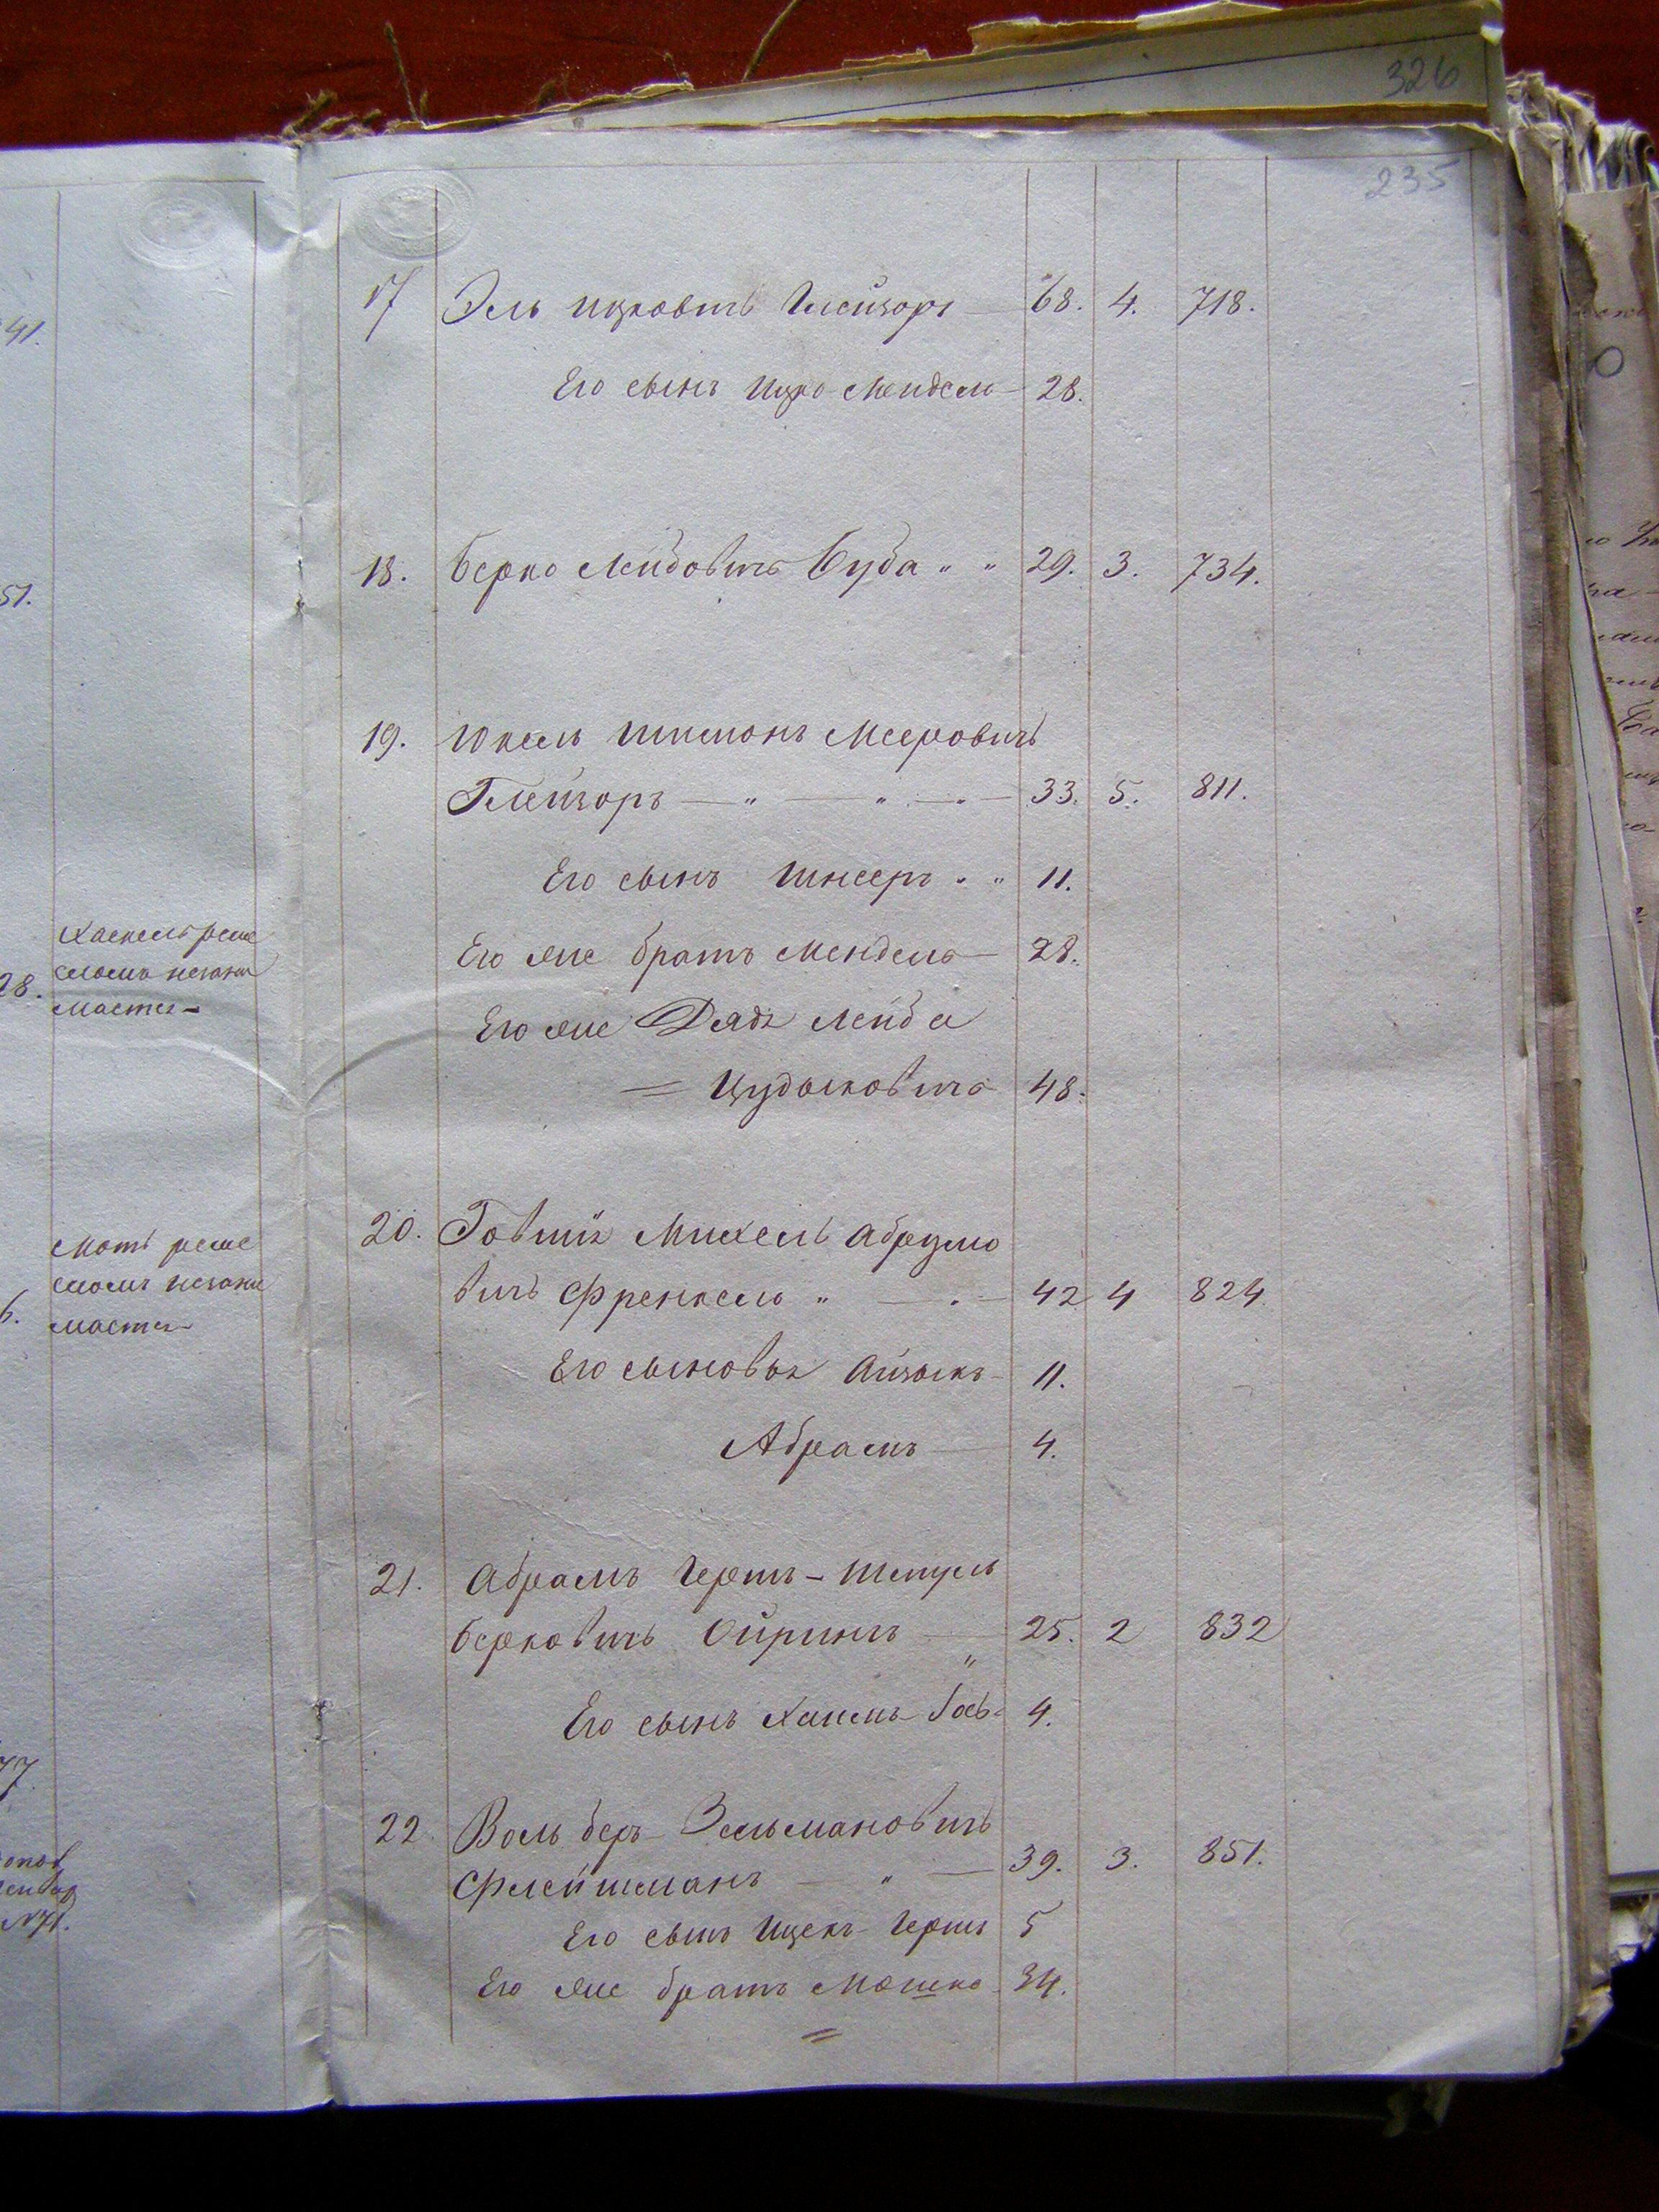 326
235
41.
51.
Хаскель реме
сломъ незани
28. мается
Мотъ реме
сломъ незани
6. мается
77.
N 71.
17 Эль Ицковичъ Глейзоръ — 68. 4. 718.
Его сынъ Ицко Мендель — 28.
18. Берко Лейбовичъ Буба " " 29. 3. 734.
19. Юкель Шимонъ Мееровичъ
Глейзоръ — " — " — " — 33. 5. 811.
Его сынъ Шнееръ " " 11.
Его же братъ Мендель — 28.
Его же Дядя Лейба
= Цудыковичъ 48.
20. Михель Абрумо
вичъ Френкель " — " — 42 4 824.
Его сыновья Айзыкъ — 11.
Абрамъ — 4.
21. Абрамъ Гершъ - Шмуль
Берковичъ Ойринъ — " 25. 2 832
Его сынъ Хаимъ 4.
22. Воль беръ Зельмановичъ
Флейшманъ — " — 39. 3. 851.
Его сынъ Ицекъ Гершъ 5
Его же братъ Мошко 34.
=